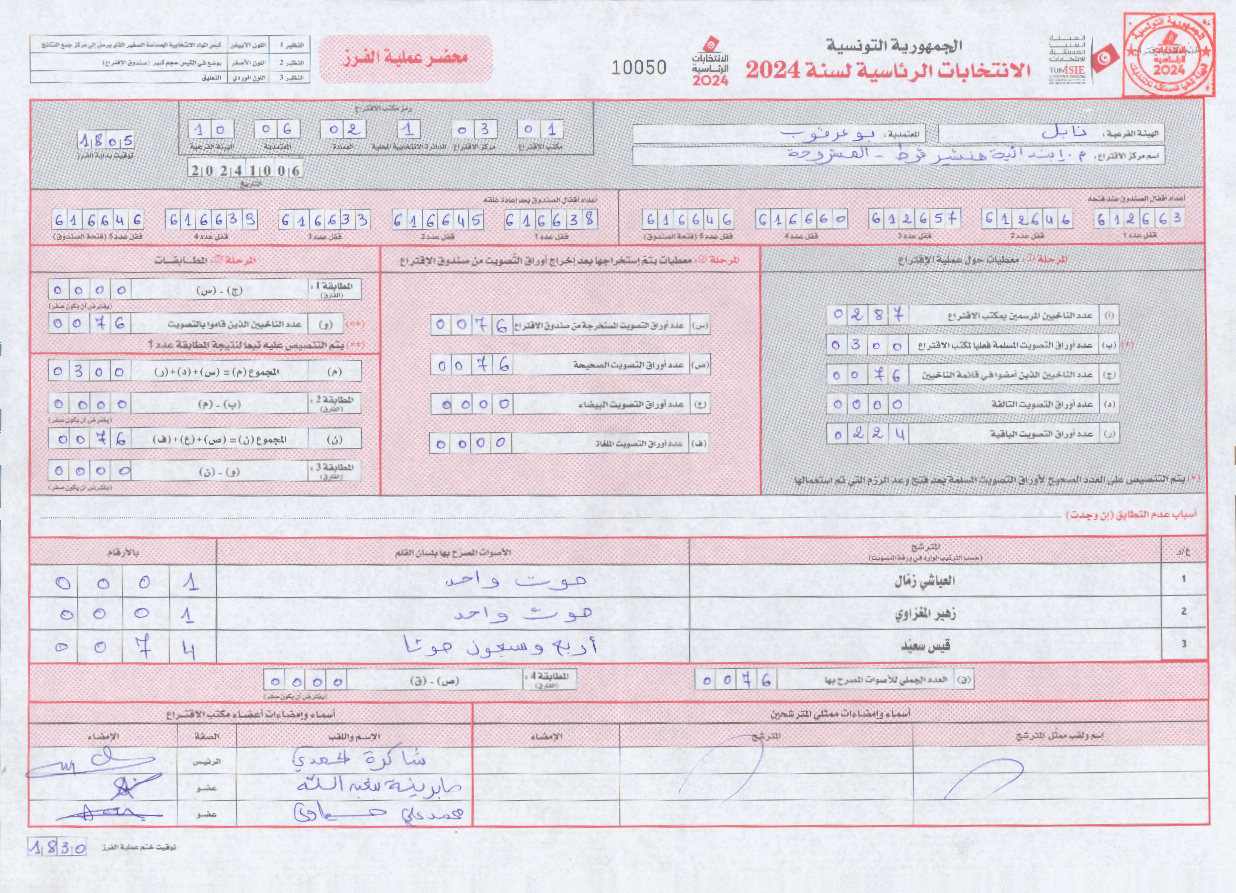 الجمهورية التونسية
الانتخابات الرئاسية لسنة 2024
الانتخابات الرئاسية 2024
10050
محضر عملية الفرز
النظير 1 اللون الأبيض
النظير 2 اللون الأصفر يوضع في الكيس حجم كبير (صندوق الاقتراع)
النظير 3 اللون الوردي التعليق
الهيئة الفرعية: نابل المعتمدية: بوعرقوب
اسم مركز الاقتراع: م. ابتدائية هنشير قرط - المشروحة
رمز مكتب الاقتراع
01 03 1 02 06 10
مكتب الاقتراع مركز الاقتراع الدائرة الانتخابية المحلية العمادة المعتمدية الهيئة الفرعية
20241006
التاريخ
1805
توقيت بداية الفرز
أعداد أقفال الصندوق عند فتحه
612663 612646 612657 616660 616646
قفل عدد 1 قفل عدد 2 قفل عدد 3 قفل عدد 4 قفل عدد 5 (فتحة الصندوق)
أعداد أقفال الصندوق بعد إعادة غلقه
616638 616645 616633 616639 616646
قفل عدد 1 قفل عدد 2 قفل عدد 3 قفل عدد 4 قفل عدد 5 (فتحة الصندوق)
المرحلة 1: معطيات حول عملية الاقتراع
(أ) عدد الناخبين المرسمين بمكتب الاقتراع 0287
(*) (ب) عدد أوراق التصويت المسلمة فعليا لمكتب الاقتراع 0300
(ج) عدد الناخبين الذين أمضوا في قائمة الناخبين 0076
(د) عدد أوراق التصويت التالفة 0000
(ر) عدد أوراق التصويت الباقية 0224
(*) يتم التنصيص على العدد الصحيح لأوراق التصويت المسلمة بعد فتح وعد الرزم التي تم استعمالها
المرحلة 2: معطيات يتم إستخراجها بعد إخراج أوراق التصويت من صندوق الاقتراع
(س) عدد أوراق التصويت المستخرجة من صندوق الاقتراع 0076
(ص) عدد أوراق التصويت الصحيحة 0076
(ع) عدد أوراق التصويت البيضاء 0000
(ف) عدد أوراق التصويت الملغاة 0000
المرحلة 3: المطابقات
المطابقة 1: (الفارق) (ج) - (س) 0000
(يفترض أن يكون صفر)
(**) (و) عدد الناخبين الذين قاموا بالتصويت 0076
(**) يتم التنصيص عليه تبعا لنتيجة المطابقة عدد 1
(م) المجموع (م) = (س)+(د)+(ر) 0300
المطابقة 2: (الفارق) (ب) - (م) 0000
(يفترض أن يكون صفر)
(ن) المجموع (ن) = (ص)+(ع)+(ف) 0076
المطابقة 3: (الفارق) (و) - (ن) 0000
(يفترض أن يكون صفر)
أسباب عدم التطابق (إن وجدت)
ع/د المترشح الأصوات المصرح بها بلسان القلم بالأرقام
(حسب الترتيب الوارد في ورقة التصويت)
1 العياشي زمّال صوت واحد 0001
2 زهير المغزاوي صوت واحد 0001
3 قيس سعيّد أربع وسبعون صوتا 0074
(ق) العدد الجملي للأصوات المصرح بها 0076
المطابقة 4: (الفارق) (ص) - (ق) 0000
(يفترض أن يكون صفر)
أسماء وإمضاءات ممثلي المترشحين
اسم ولقب ممثل المترشح المترشح الإمضاء
أسماء وإمضاءات أعضاء مكتب الاقتراع
الاسم واللقب الصفة الإمضاء
شاكرة الرئيس
صابرينة عبد الله عضو
محمد علي عضو
توقيت ختم عملية الفرز 1830